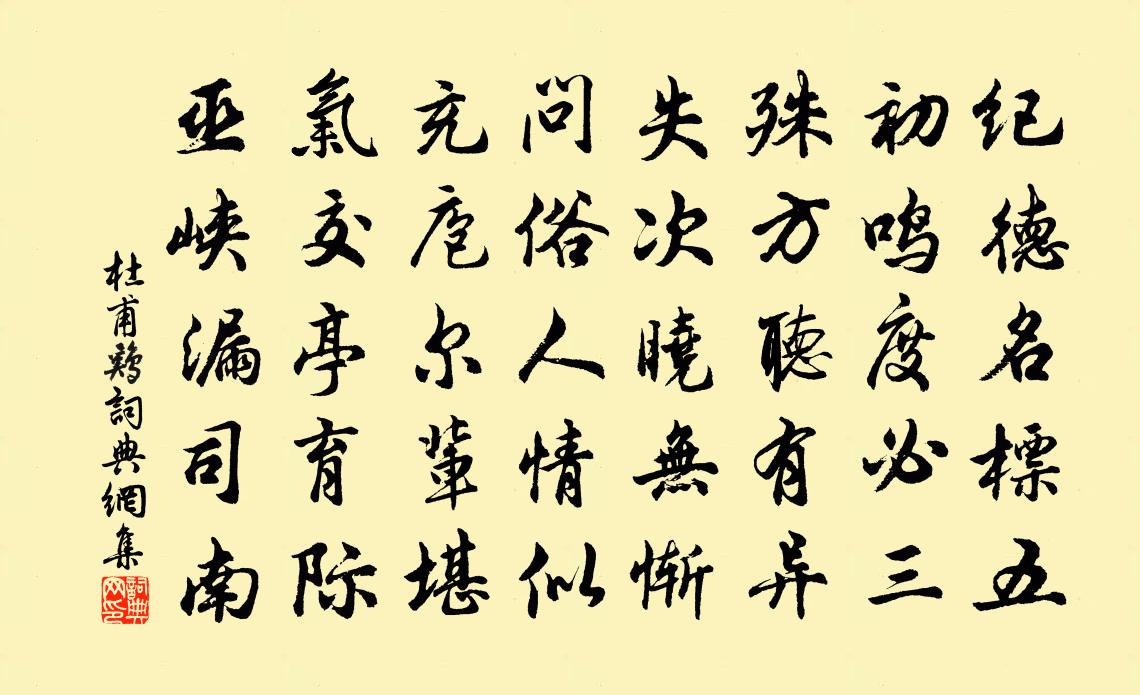 纪德名標五
初鸣度必三
殊方聽有异
失次曉無惭
问俗人情似
充庖尔輩堪
氣交亭育际
巫峡漏司南
杜甫鷄詞典網集
詞典网印